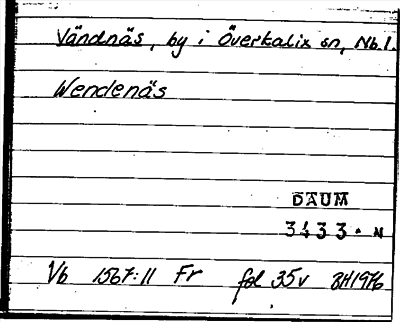 Vändnäs, by i Överkalix sn, Nb.l.
Wendenäs
DAUM
3433. N
Vb 1567:11 Fr fol 35v BH1976